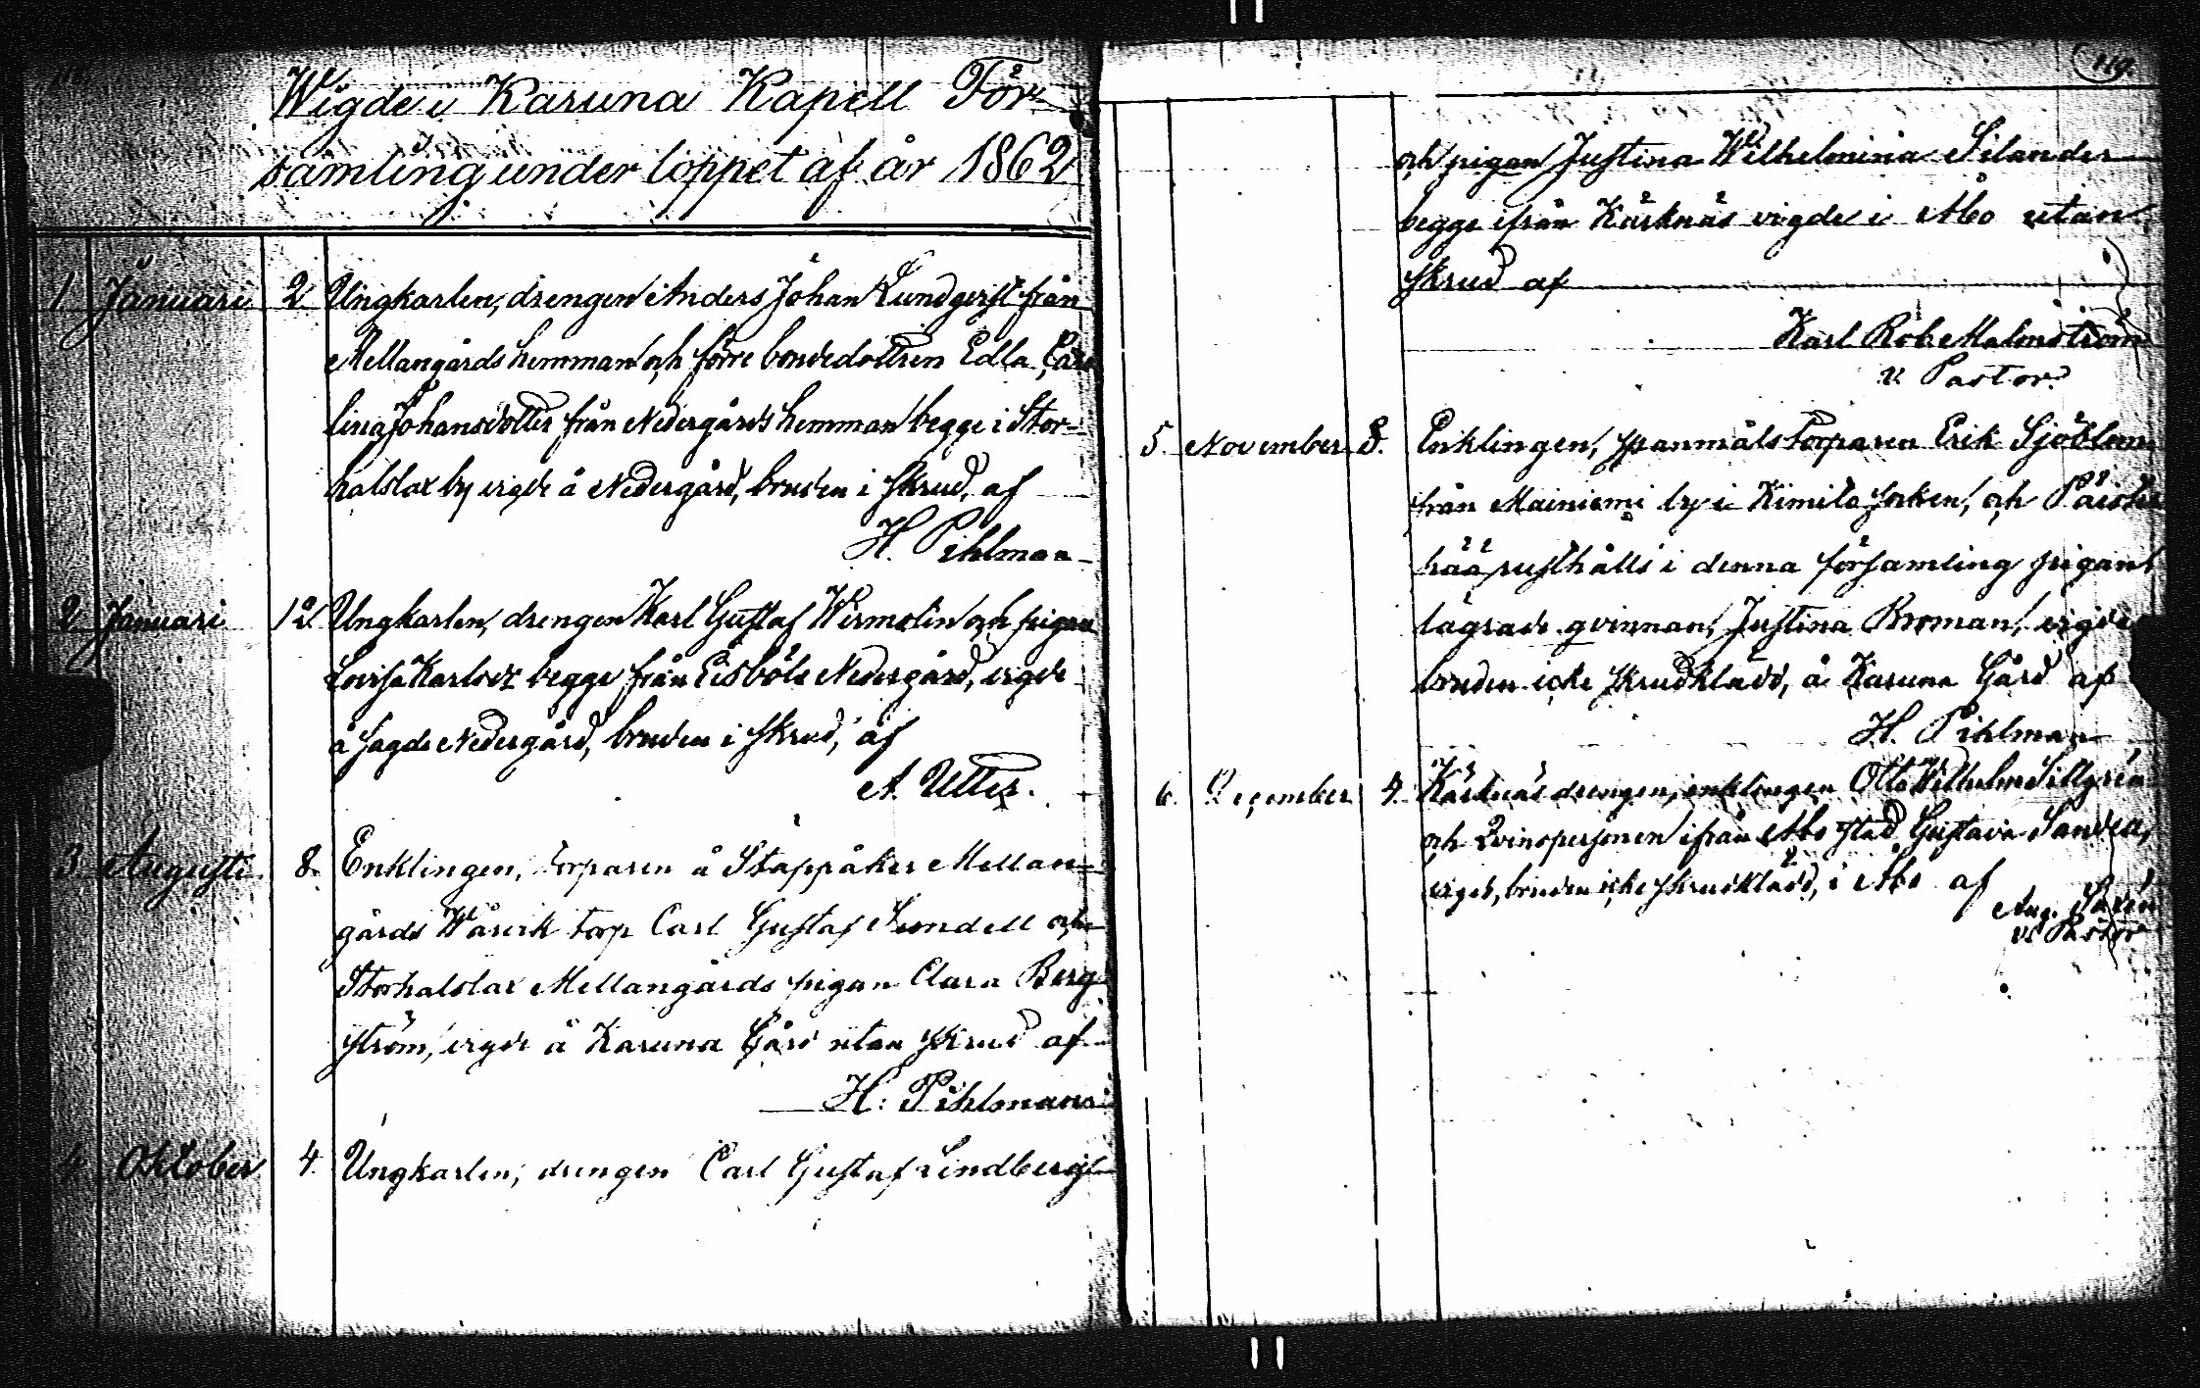 Wigde i Karuna Kapell För-
samling under loppet af år 1862
1 Januari 2 Ungkarlen, drengen Anders Johan Lundqvist från
Mellangårds hemman och förre bondedottren Edla Caro
lina Johansdotter från Nedergårds hemman begge i Stor-
halslax by vigde å Nedergård, bruden i skrud, af
H. Pihlman
2 Januari 12 Ungkarlen, drengen Karl Gustaf Wirmolin och pigan
Lovisa Karlsdr begge från Eisböle Nedergård, vigde
å sagde Nedergård, bruden i skrud, af
A. Utter.
3 Augusti 8. Enklingen, torparen å Stappåker Mellan-
gårds torp Carl Gustaf Sundell och
Storhalslax Mellangårds pigan Clara Berg
ström, vigde å Karuna Gård utan skrud af
H: Pihlman
4 Oktober 4. Ungkarlen, drengen Carl Gustaf Lindberg
119.
och pigan Justina Wilhelmina Silander
begge ifrån Kärknäs vigde i Åbo utan
skrud af
Karl Rob. Malmström
v. Pastor.
5. November 8. Enklingen, spanmåls torparen Erik Sjöblom
från Mainiemi by i Kimito socken, och
rusthålls i denna församling pigan,
lägrade qvinnan, Justina Broman, vigde
bruden icke skrudklädd, å Karuna Gård af
H. Pihlman
6. December 4. Kärknäs drengen, enklingen Otto Wilhelm Sillgrén
och Qvinspersonen ifrån Åbo stad Gustava
vigde, bruden icke skrudklädd, i Åbo af
Aug.
v. Pastor